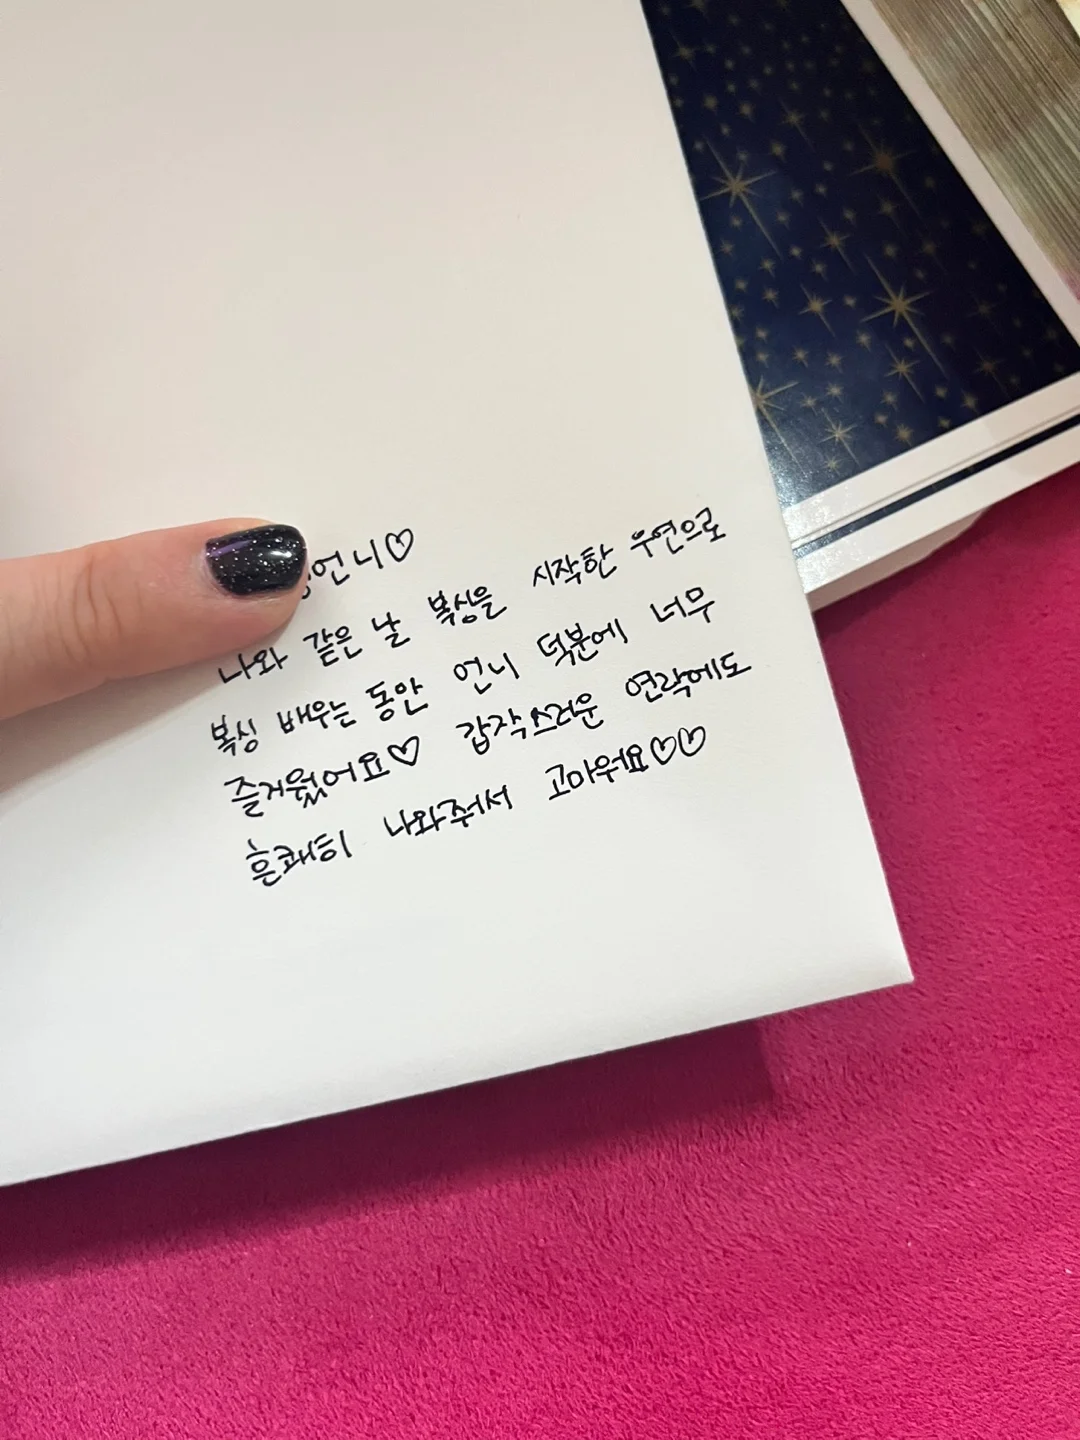 언니♡
나와 같은 날 복싱을 시작한 우연으로
복싱 배우는 동안 언니 덕분에 너무
즐거웠어요♡ 갑작스러운 연락에도
흔쾌히 나와줘서 고마워요♡♡